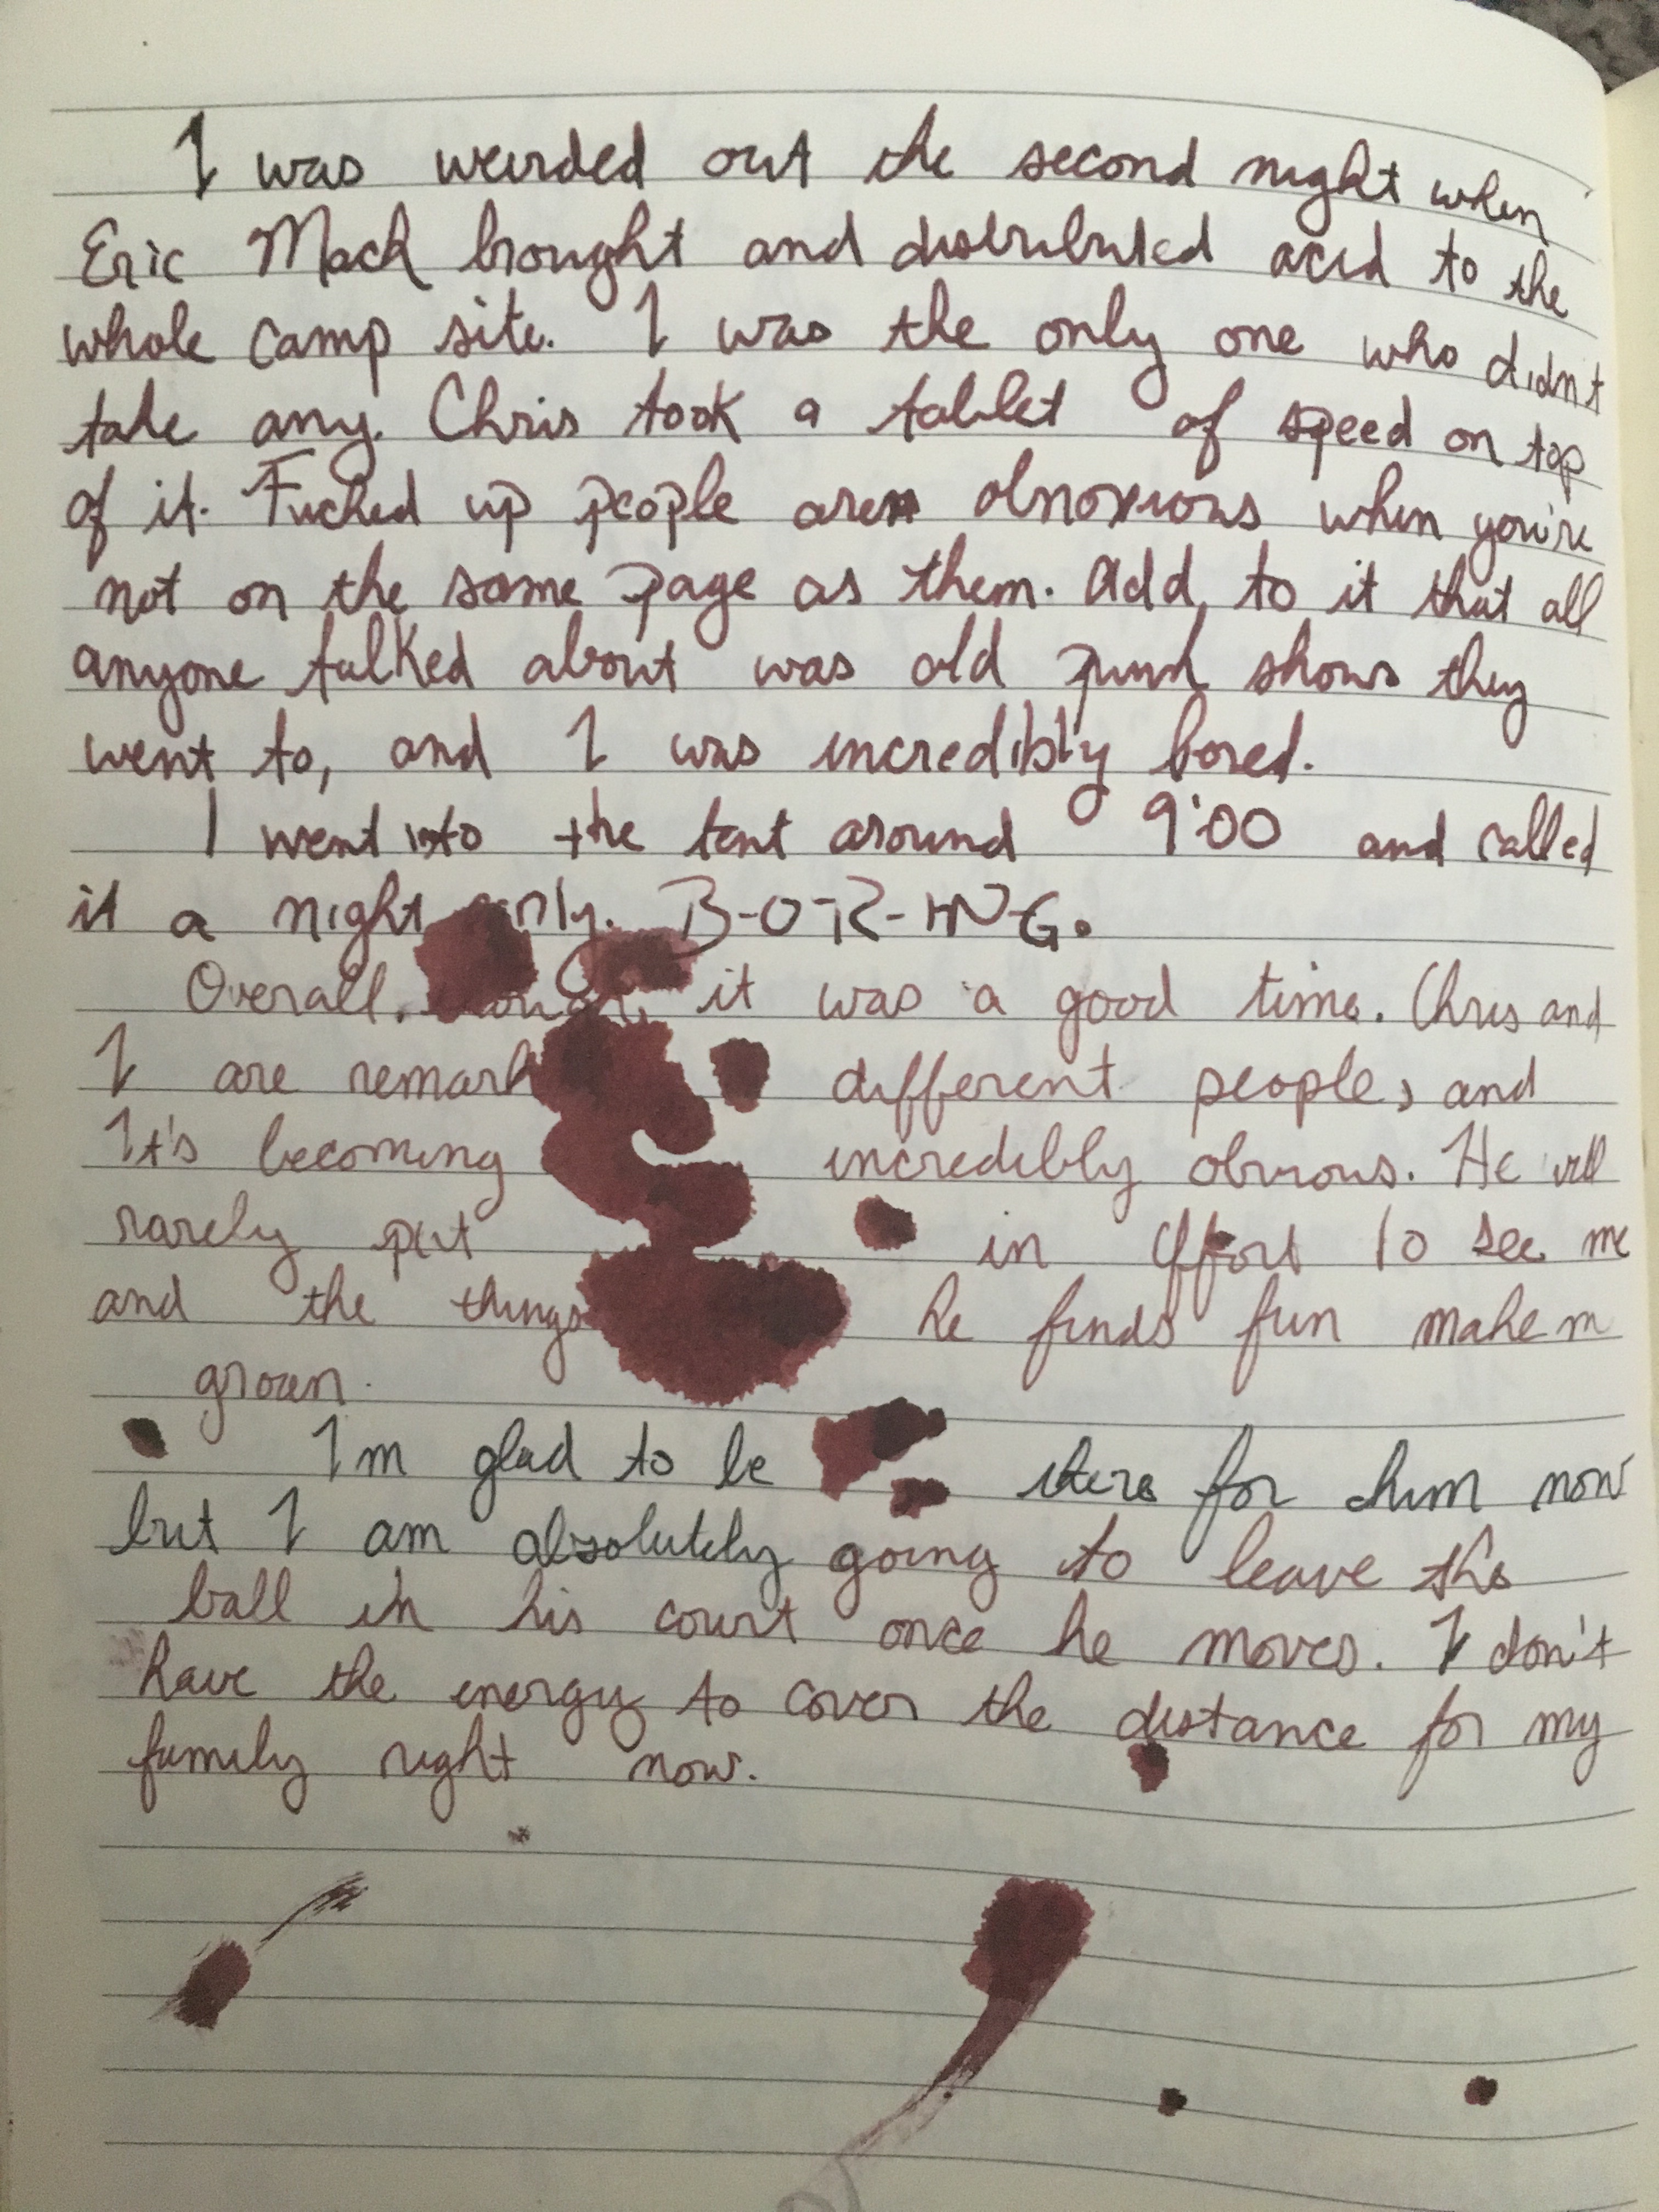 I was weirded out the second night when
Eric Mack brought and distributed acid to the
whole camp site. I was the only one who didnt
take any. Chris took a tablet of speed on top
of it. Fucked up people are obnoxious when you're
not on the same page as them. Add to it that all
anyone talked about was old punk shows they
went to, and I was incredibly bored.
I went into the tent around 9:00 and called
it a night early. B-O-R-I-N-G.
Overall, though, it was a good time. Chris and
I are remark different people, and
It's becoming incredibly obvious. He will
rarely put in effort to see me
and the things he finds fun make m
groan.
Im glad to be there for him now
but I am absolutely going to leave the
ball in his court once he moves. I don't
have the energy to cover the distance for my
family right now.